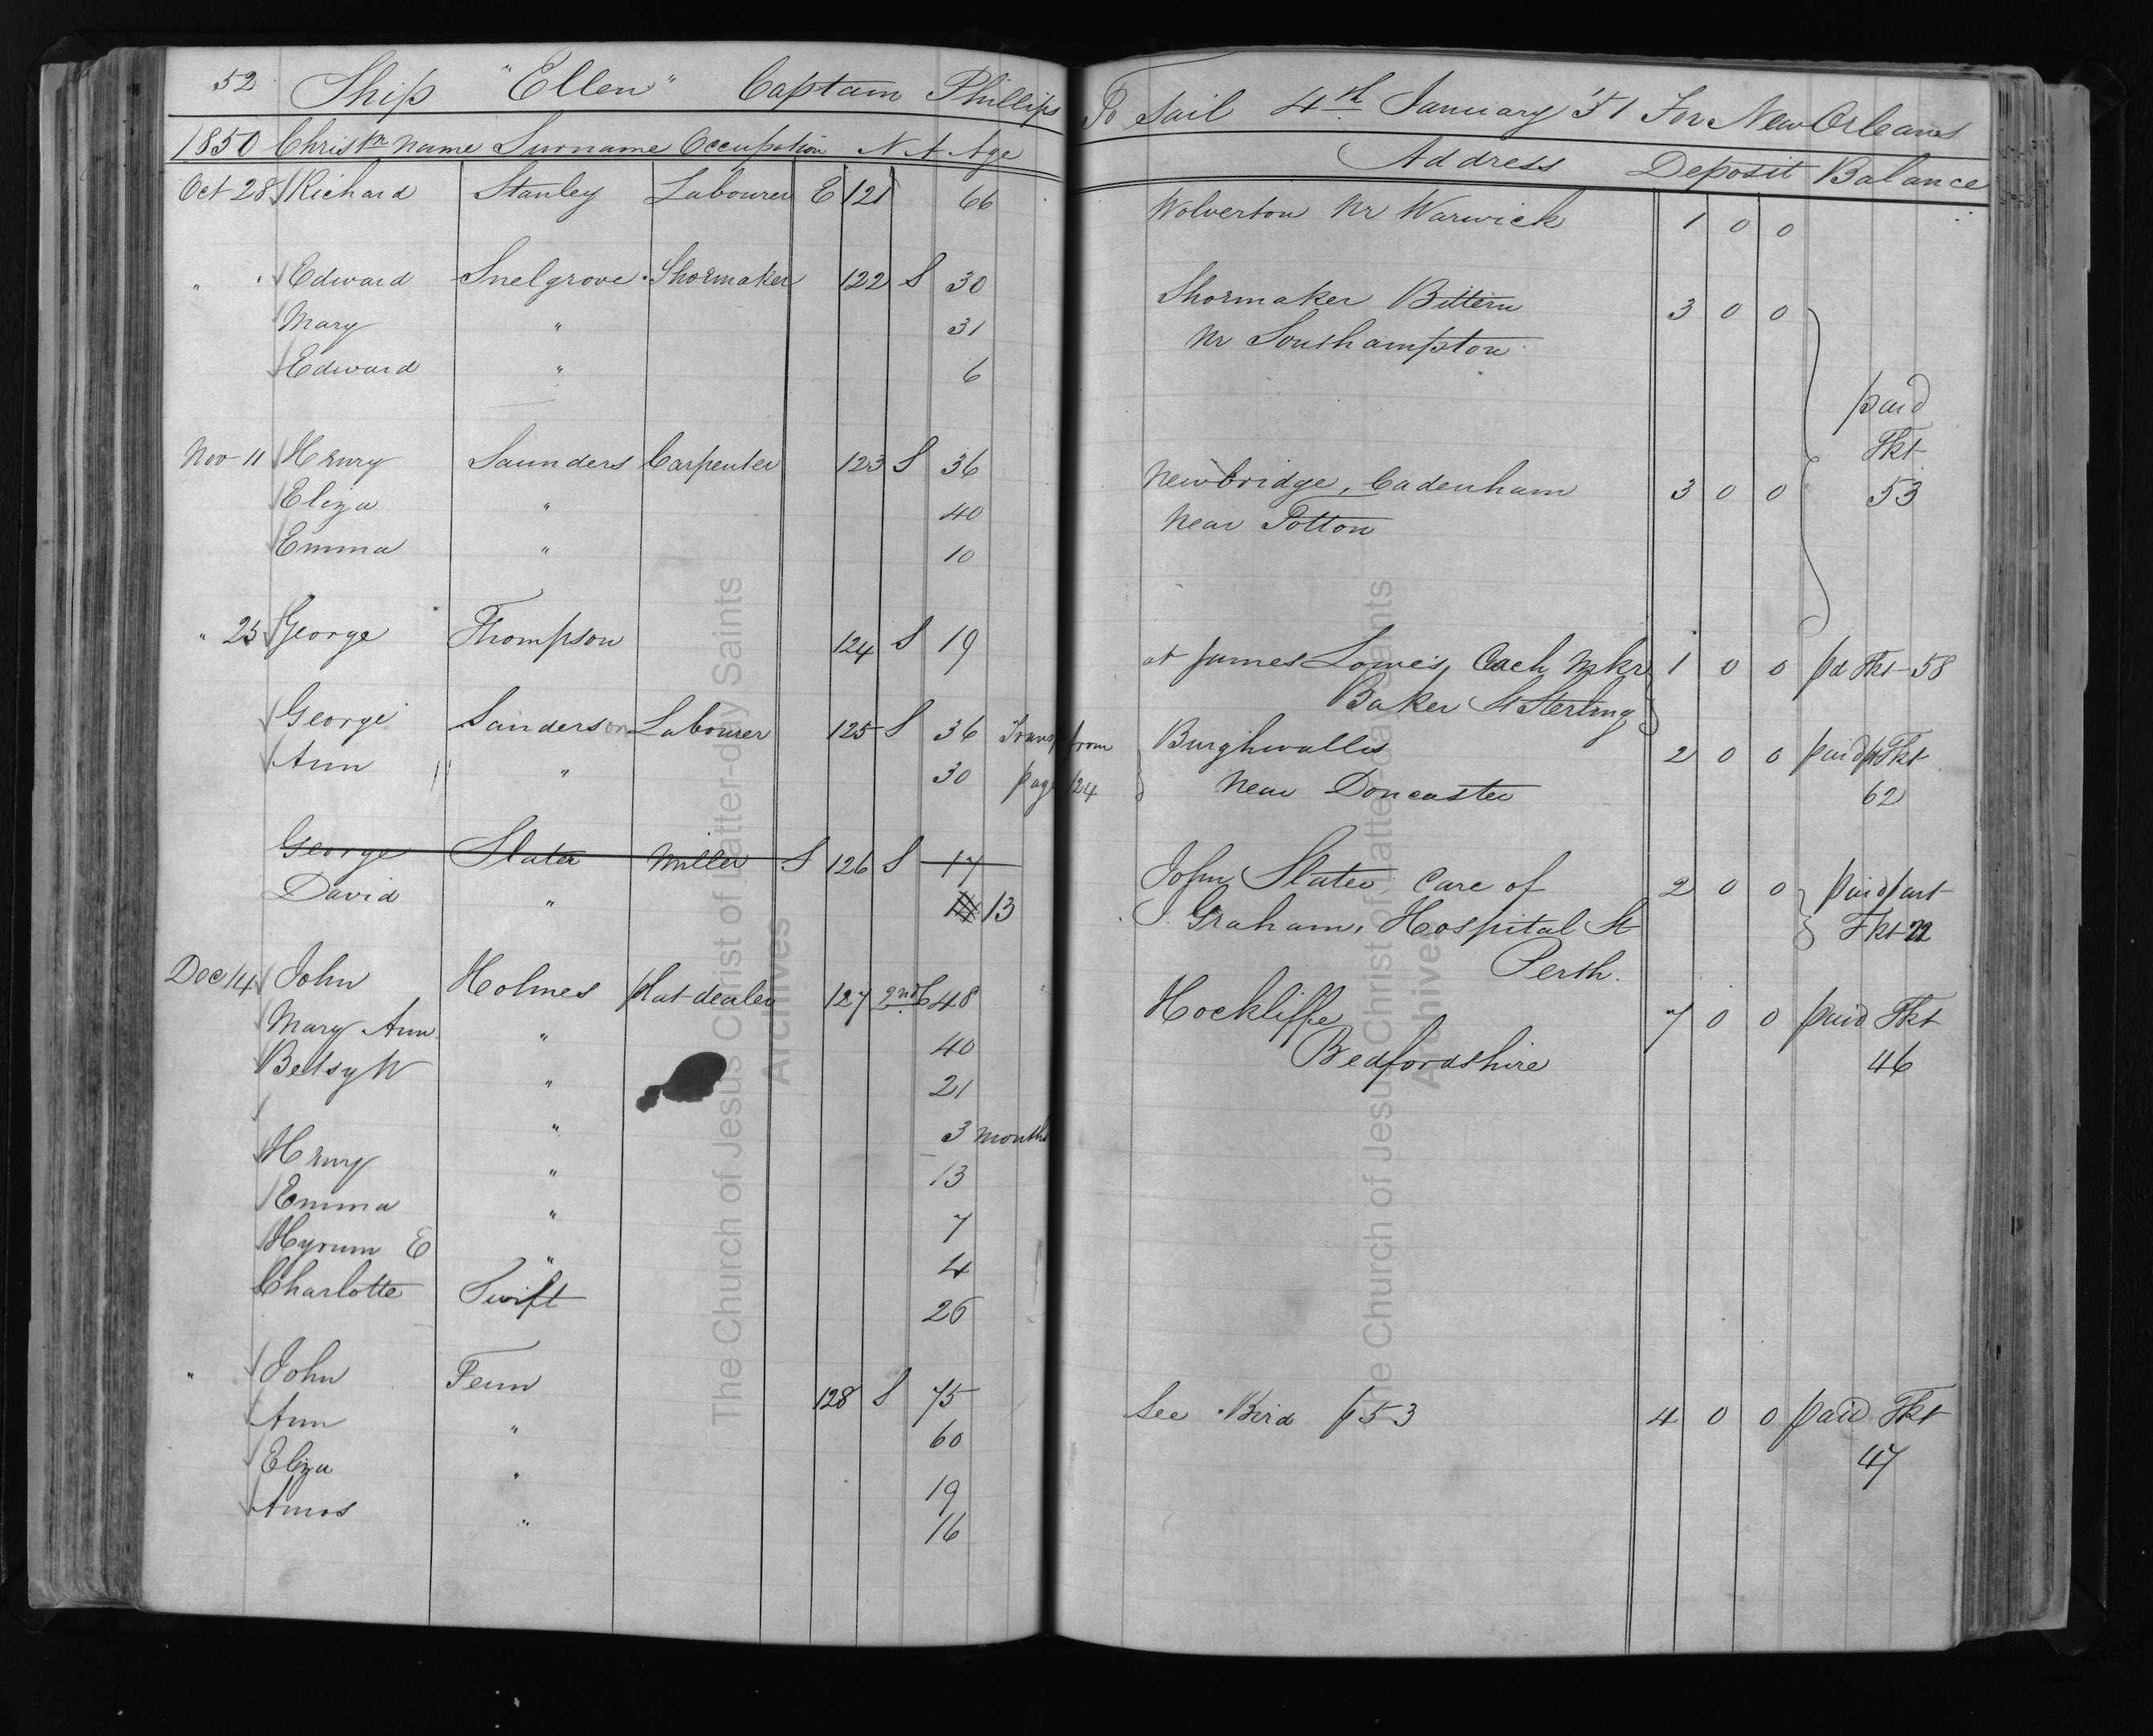 52 Ship "Ellen" Captain Phillips To Sail 4th January '51 For New Orleans
1850 Christn Name Surname Occupation N. A. Age Address Deposit Balance
Oct 28 Richard Stanley Labourer E 121 66 Wolverton Nr Warwick 1 0 0
" " Edward Snelgrove Shoemaker 122 S 30 Shoemaker Bittern 3 0 0
Mary " 31 Nr Southampton
Edward " 6
paid
Tkt
Nov 11 Henry Saunders Carpenter 123 S 36 Newbridge, Cadenham 3 0 0 53
Eliza " 40 Near Totton
Emma " 10
" 25 George Thompson 124 S 19 at James Lowe's, Coach Mkr 1 0 0 pd Tkt 58
Baker St Sterling
George Sanderson Labourer 125 S 36 Trans from Burghwallis 2 0 0 paid Tkt
Ann " 30 page 124 Near Doncaster 62
George Slater Miller S 126 S 17 John Slater, Care of 2 0 0 paid part
David " 13 Graham, Hospital St Tkt 22
Perth.
Dec 14 John Holmes plat dealer 127 2nd C 48 Hockliffe 7 0 0 paid Tkt
Mary Ann " 40 Bedfordshire 46
Betsy W " 21
" 3 months
Henry " 13
Emma " 7
Hyrum E " 4
Charlotte Swift 26
" John Fenn 128 S 75 See Bird p 53 4 0 0 paid Tkt
Ann " 60 47
Eliza " 19
Amos " 16
The Church of Jesus Christ of Latter-day Saints
Archives
The Church of Jesus Christ of Latter-day Saints
Archives